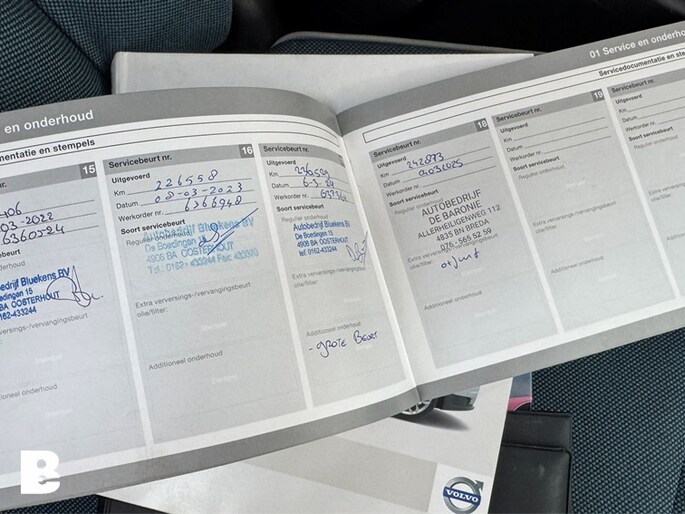 en onderhoud
mentatie en stempels
15
406
03-2022
6360524
beurt
onderhoud
edrijf Bluekens BV
edingen 15
BA OOSTERHOUT
162-433244
versings-/vervangingsbeurt
Additioneel onderhoud
Servicebeurt nr.
16
Uitgevoerd
Km 226558
Datum 08-03-2023
Werkorder nr. 6368948
Soort servicebeurt
Regulier onderhoud
Autobedrijf Bluekens BV
De Boedingen
4906 BA OOSTERHOUT
Tel.: 0162-433244
Extra verversings-/vervangingsbeurt
olie/filter:
Additioneel onderhoud
Servicebeurt nr.
Uitgevoerd
Km
Datum
Werkorder nr.
Soort servicebeurt
Regulier onderhoud
Autobedrijf Bluekens BV
De Boedingen 15
4906 BA OOSTERHOUT
tel. 0162-433244
Extra verversings-/vervangingsbeurt
olie/filter:
Additioneel onderhoud
- GROTE BEURT
01 Service en onderho
Servicedocumentatie en ste
Servicebeurt nr.
18
Uitgevoerd
Km 242873
Datum
Werkorder nr.
Soort servicebeurt
Regulier onderhoud
AUTOBEDRIJF
DE BARONIE
ALLERHEILIGENWEG 112
4835 BN BREDA
076 - 565 52 59
Extra verversings-/vervangingsbeurt
olie/filter:
Additioneel onderhoud
Servicebeurt nr.
19
Uitgevoerd
Km
Datum
Werkorder nr.
Soort servicebeurt
Regulier onderhoud
Extra verversings-/vervangingsbeurt
olie/filter:
Additioneel onderhoud
Servicebeurt nr.
Uitgevoerd
Km
Datum
Werkorder nr.
Soort servicebeurt
Regulier onderhoud
Extra verversings-/verva
olie/filter:
Additioneel onderh
VOLVO
B